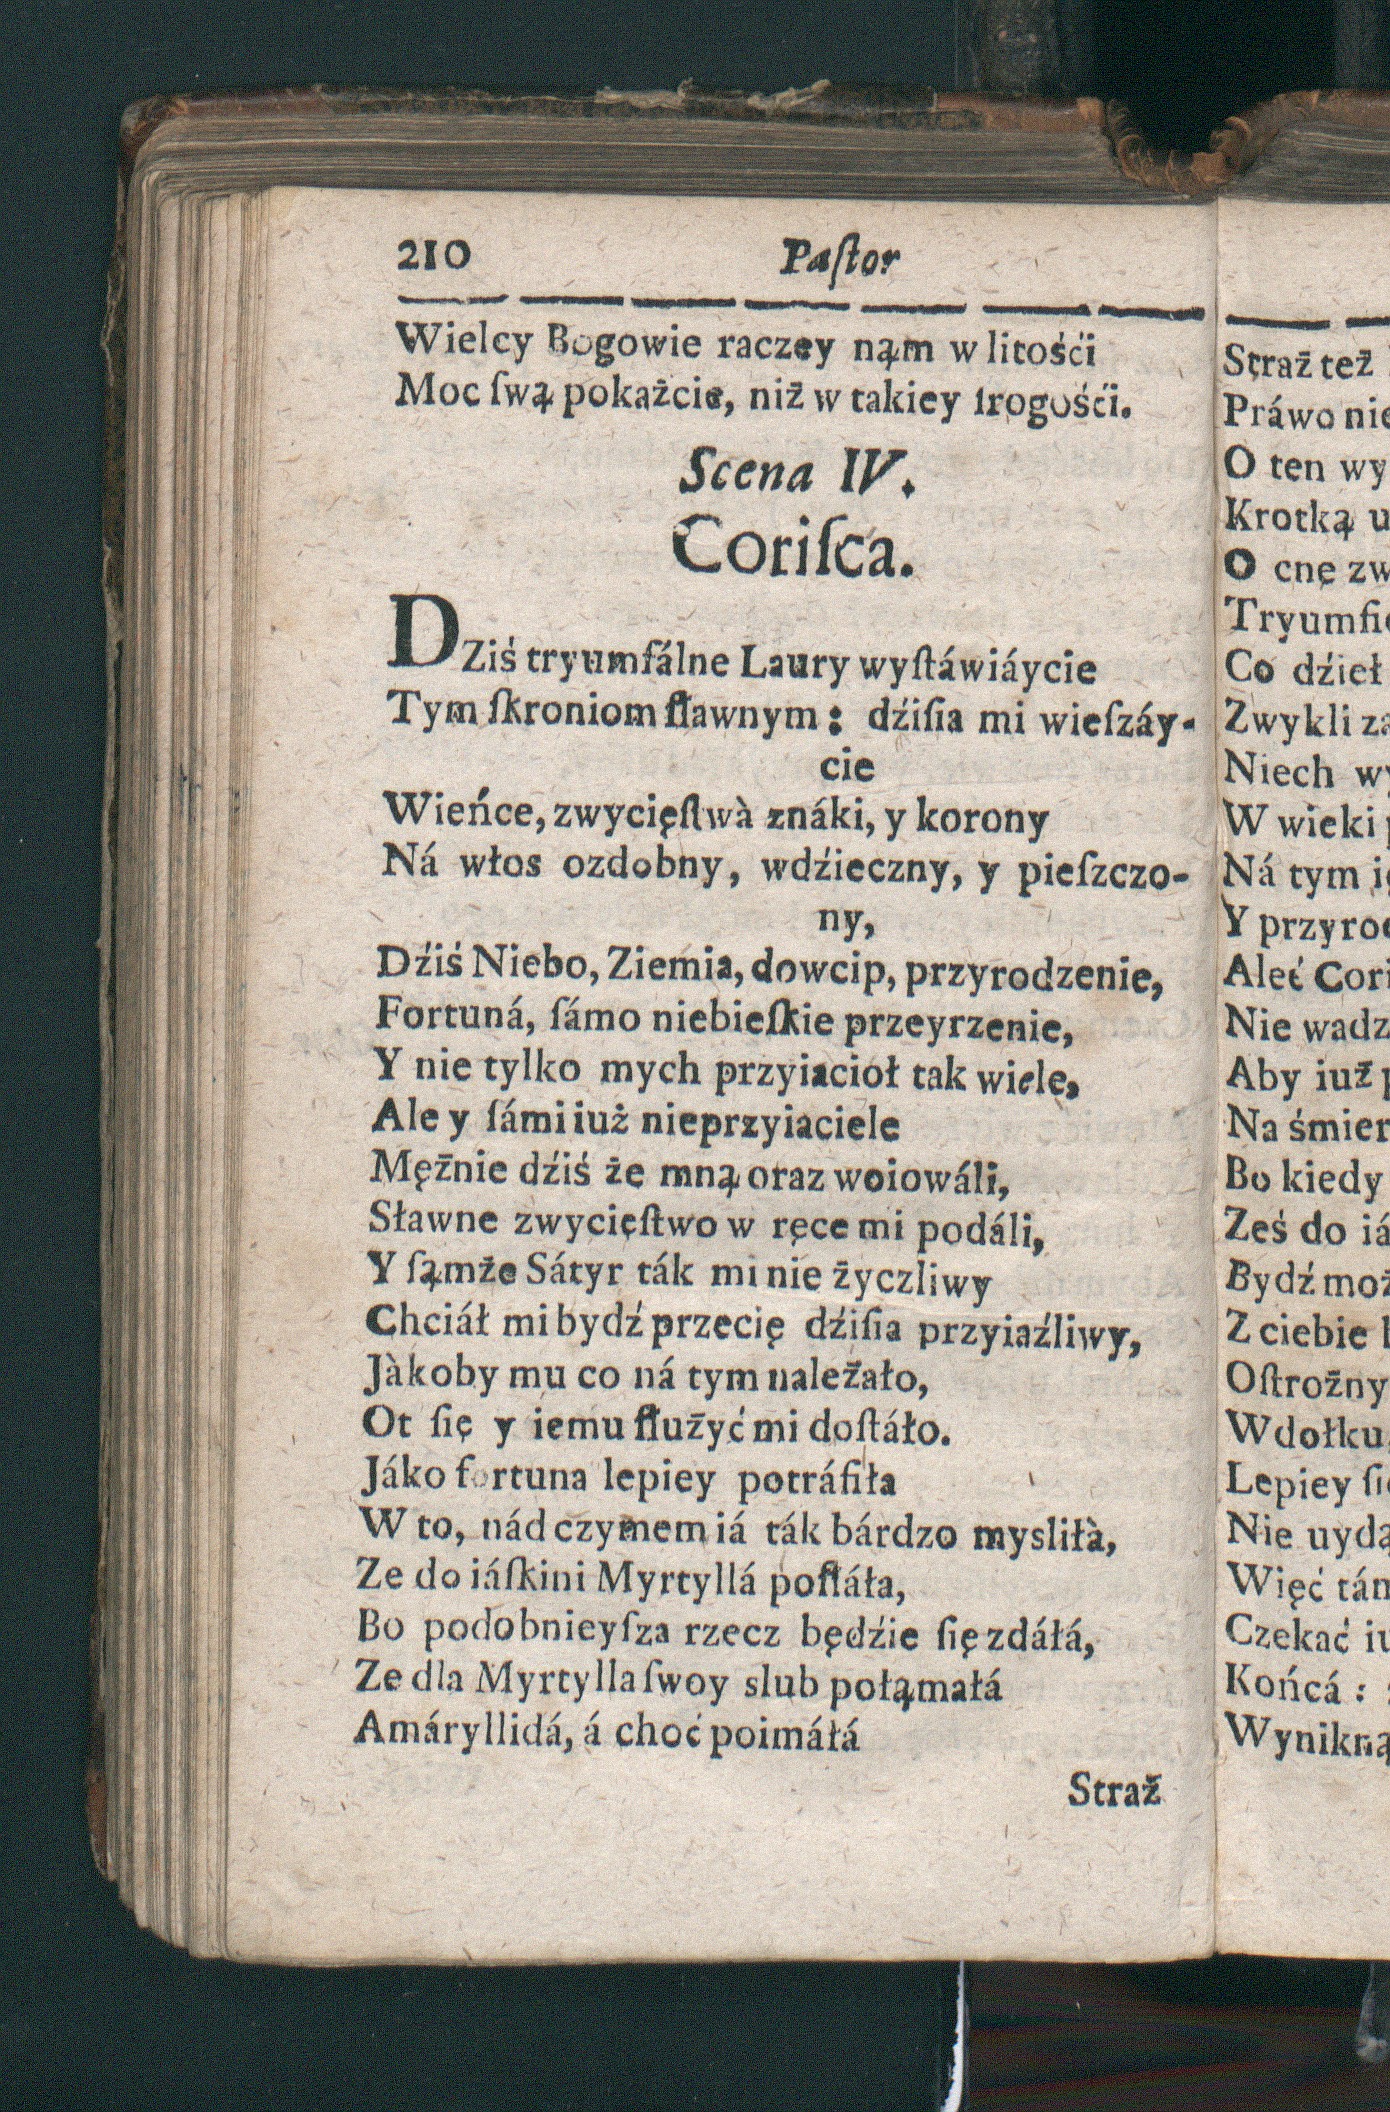 210 Paſtor
Wielcy Bogowie raczey nąm w litośći
Moc ſwą pokażcie, niż w takiey ſrogośći.
Scena IV.
Coriſca.
DZiś tryumfálne Laury wyſtáwiáycie
Tym ſkroniom ſławnym: dźiſia mi wieſzáy-
cie
Wieńce, zwycięſtwà znáki, y korony
Ná włos ozdobny, wdźieczny, y pieſzczo-
ny,
Dźiś Niebo, Ziemia, dowcip, przyrodzenie,
Fortuná, ſámo niebieſkie przeyrzenie,
Y nie tylko mych przyiacioł tak wiele,
Ale y ſámi iuż nieprzyiaciele
Mężnie dźiś że mną oraz woiowáli,
Sławne zwycięſtwo w ręce mi podáli,
Y ſąmże Sátyr ták mi nie życzliwy
Chciáł mi bydź przecię dźiſia przyiaźliwy,
Jàkoby mu co ná tym należało,
Ot ſię y iemu ſłużyć mi doſtáło.
Jáko fortuna lepiey potráfiła
W to, nád czymem iá ták bárdzo mysliłà,
Ze do iáſkini Myrtyllá poſłáła,
Bo podobnieyſza rzecz będźie ſię zdáłá,
Ze dla Myrtylla ſwoy slub połąmałá
Amáryllidá, á choć poimáłá
Straż
Straż też
Práwo nie
O ten wy
Krotką u
O cne zw
Tryumfie
Co dźieł
Zwykli za
Niech wy
W wieki
Ná tym ię
Y przyrod
Aleć Cori
Nie wadz
Aby iuż p
Na śmier
Bo kiedy
Żeś do iá
Bydź moż
Z ciebie
Oſtrożny
W dołku
Lepiey ſię
Nie uydą
Więć tám
Czekać iu
Końcá:
Wynikną